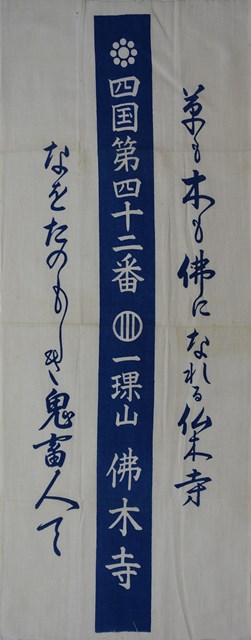 草も木も佛になれる仏木寺
四国第四十二番 一琛山 佛木寺
なをたのもしき鬼畜人天